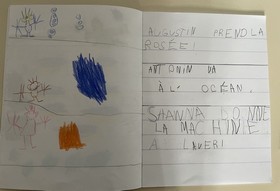 AUGUSTIN PREND LA
ROSÉE!
ANTONIN VA
À L'OCÉAN.
SHANNA DONNE
LA MACHINE
A LAVER!